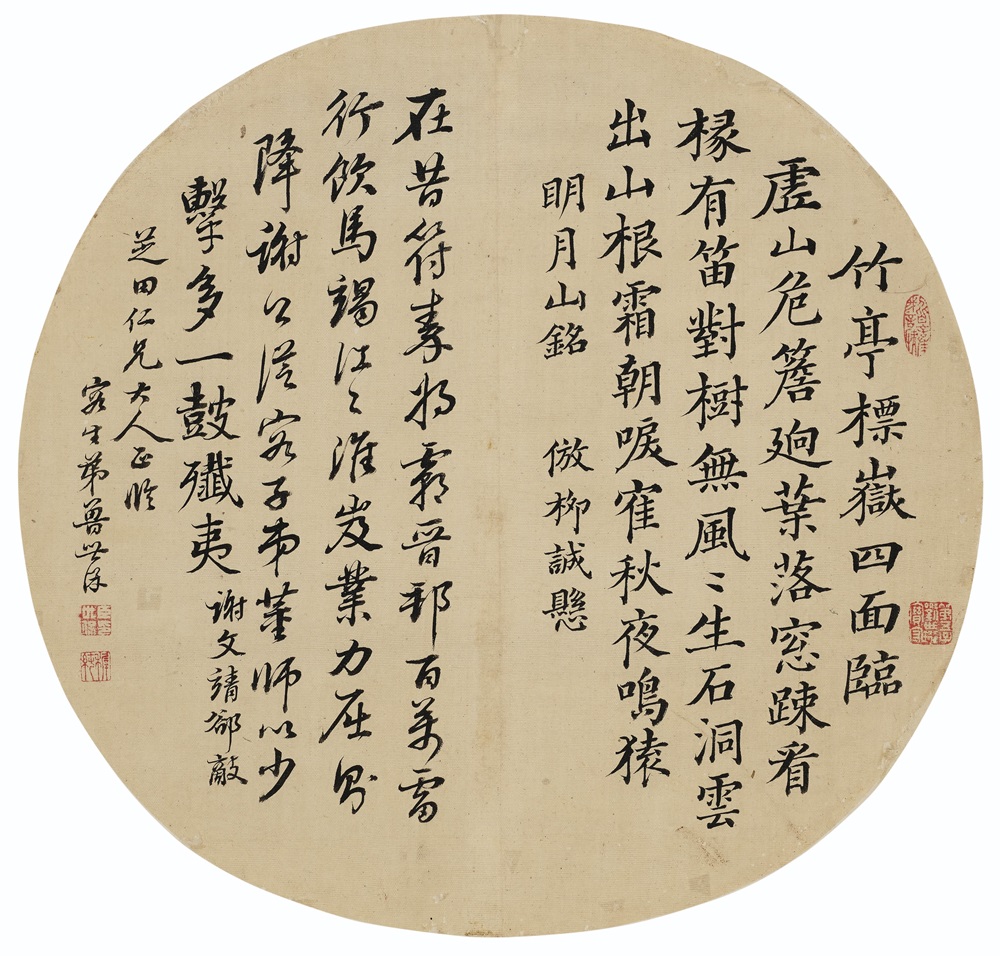 竹亭標嶽四面臨
虛山危簷迥葉落窓踈看
椽有笛對樹無風〻生石洞雲
出山根霜朝唳寉秋夜鳴猿
明月山銘 倣柳誠懸
在昔苻秦將霸晉邦百萬雷
行飲馬竭江〻淮岌業力屈勢
降謝公從容子弟董師以少
擊多一鼓殲夷 謝文靖郤敵
芝田仁兄大人正腕
容生弟魯